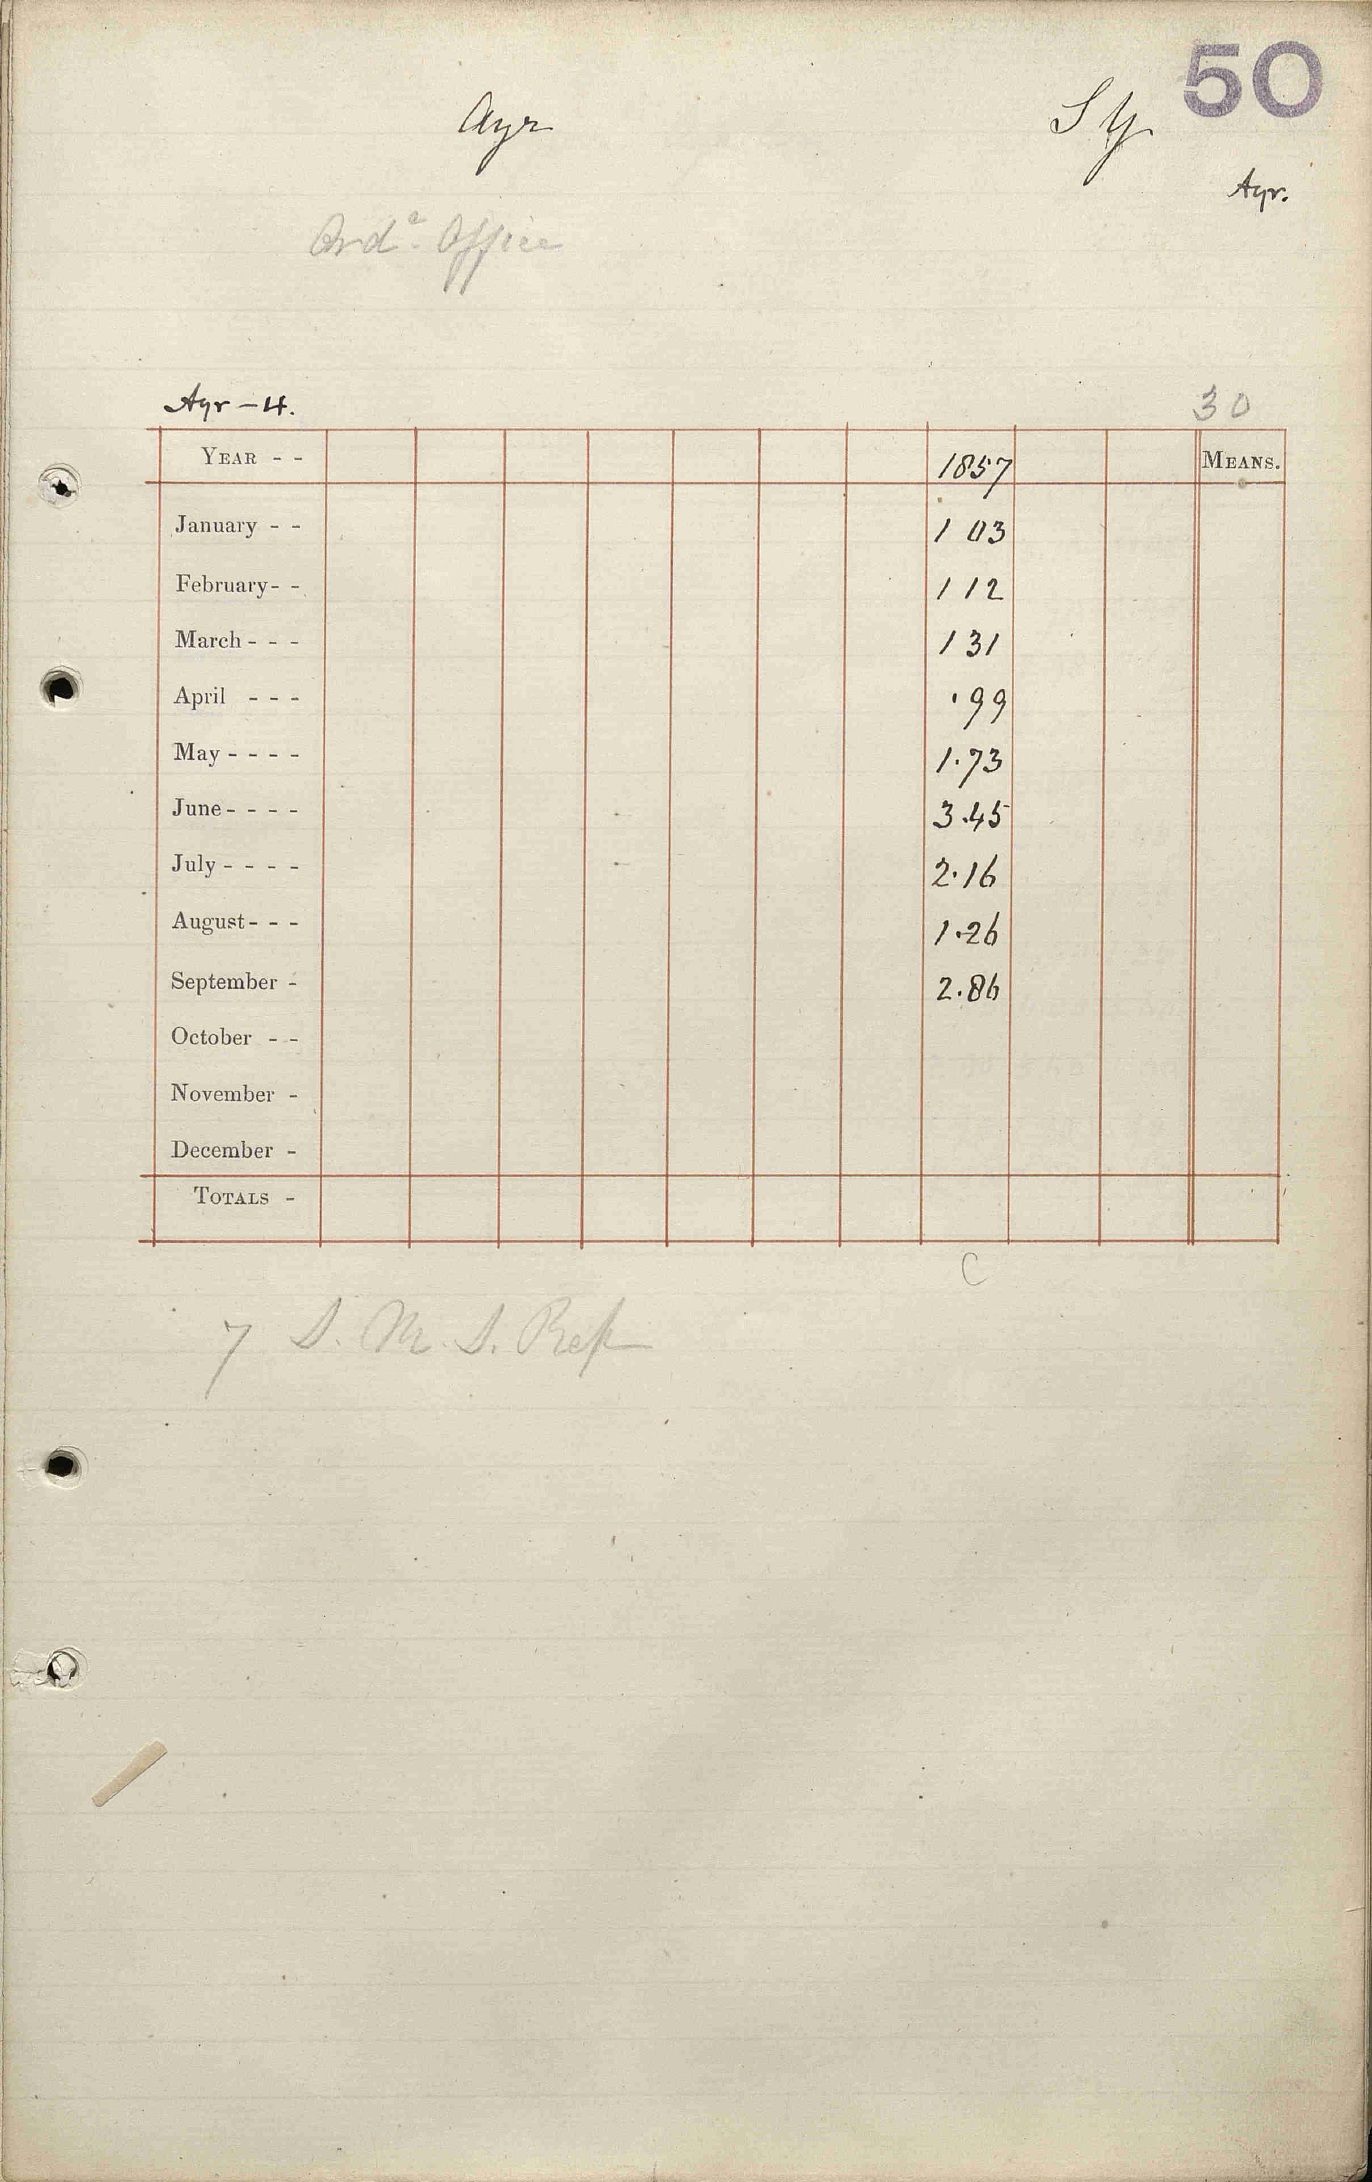 50
Ayr S Y
Ayr.
Ord.ᵉ Office
Ayr - 4. 30
YEAR - - 1857 MEANS.
January - - 1 03
February - - 1 12
March - - - 1 31
April - - - .99
May - - - - 1.73
June - - - - 3.45
July - - - - 2.16
August - - - 1.26
September - 2.86
October - -
November -
December -
TOTALS -
C
7 S. M. S. Rep